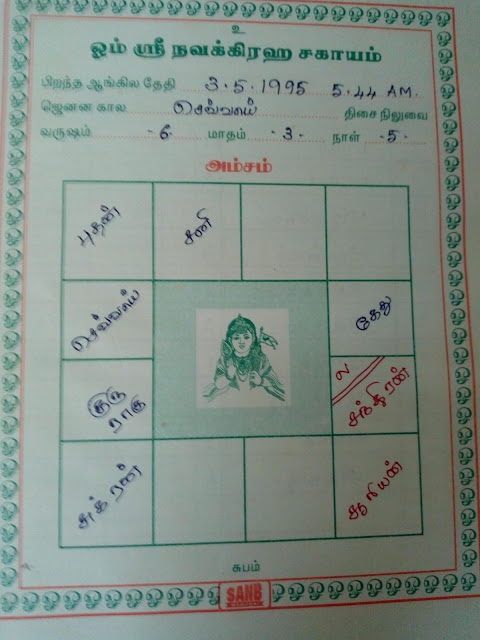 உ
ஓம் ஸ்ரீ நவக்கிரஹ சகாயம்
பிறந்த ஆங்கில தேதி 3.5.1995 5.44 AM.
ஜெனன கால செவ்வாய் திசை நிலுவை
வருஷம் -6- மாதம் -3- நாள் -5-
அம்சம்
புதன் சனி
செவ்வாய் கேது
குரு ராகு ல சந்திரன்
சுக்ரன் சூரியன்
சுபம்
SANB